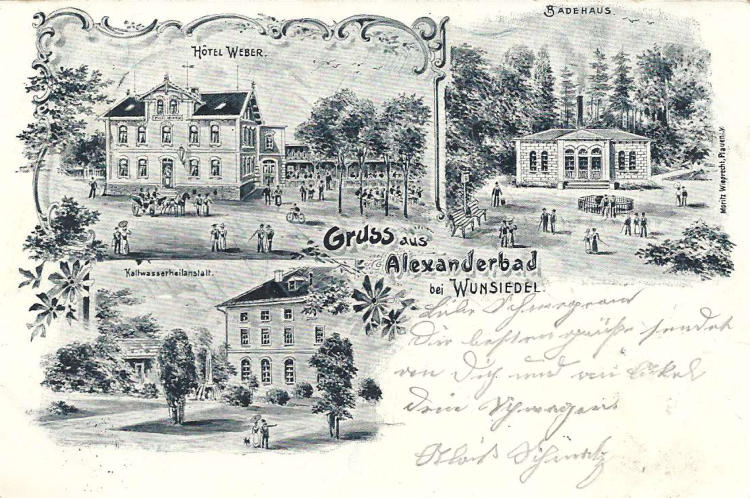 HÔTEL WEBER.
BADEHAUS
Moritz Wieprecht, Plauen i. V.
Gruss aus
Alexanderbad
bei WUNSIEDEL.
Kaltwasserheilanstalt.
Liebe Schwägerin
Die besten Grüße sendet
an Dich und
dein Schwager
Alois